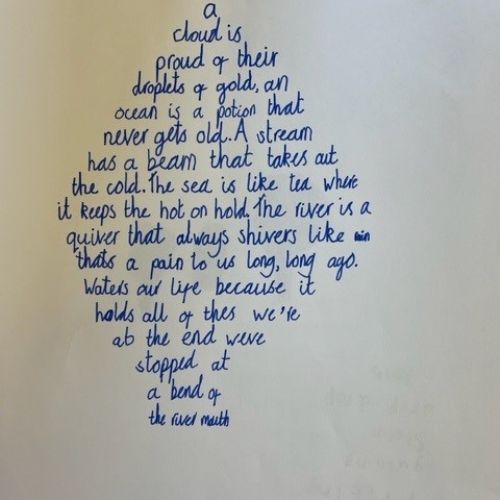 a
cloud is
proud of their
droplets of gold, an
ocean is a potion that
never gets old. A stream
has a beam that takes out
the cold. The sea is like tea where
it keeps the hot on hold. The river is a
quiver that always shivers like
thats a pain to us long, long ago.
Waters our life because it
holds all of thes we're
at the end were
stopped at
a bend of
the river mouth